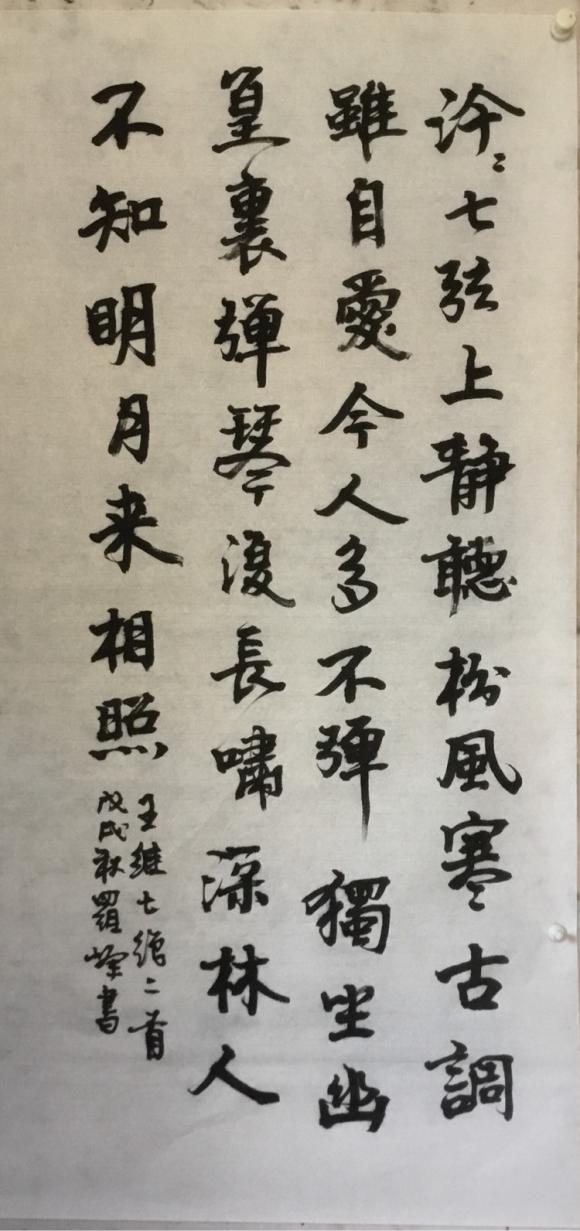 泠〻七弦上靜聽松風寒古調
雖自愛今人多不彈獨坐幽
篁裏彈琴復長嘯深林人
不知明月来相照
王維七絕二首
戊戌秋羅書